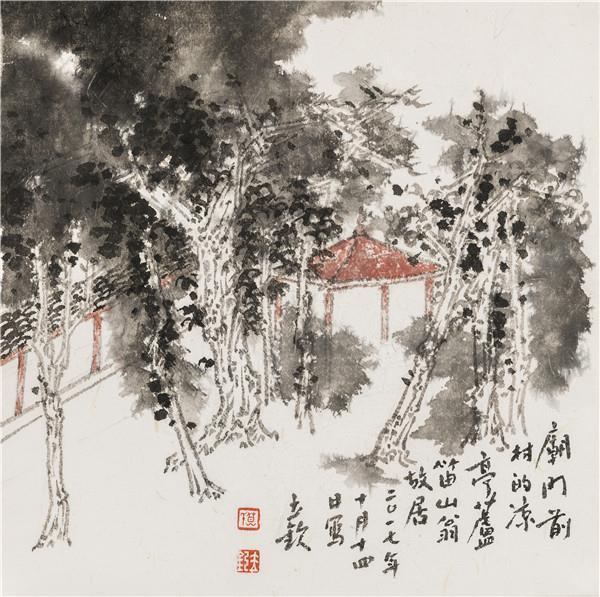 廟门前
村的凉
亭蘆
笛山翁
故居
二〇一七年
十月十四
日寫
士钦